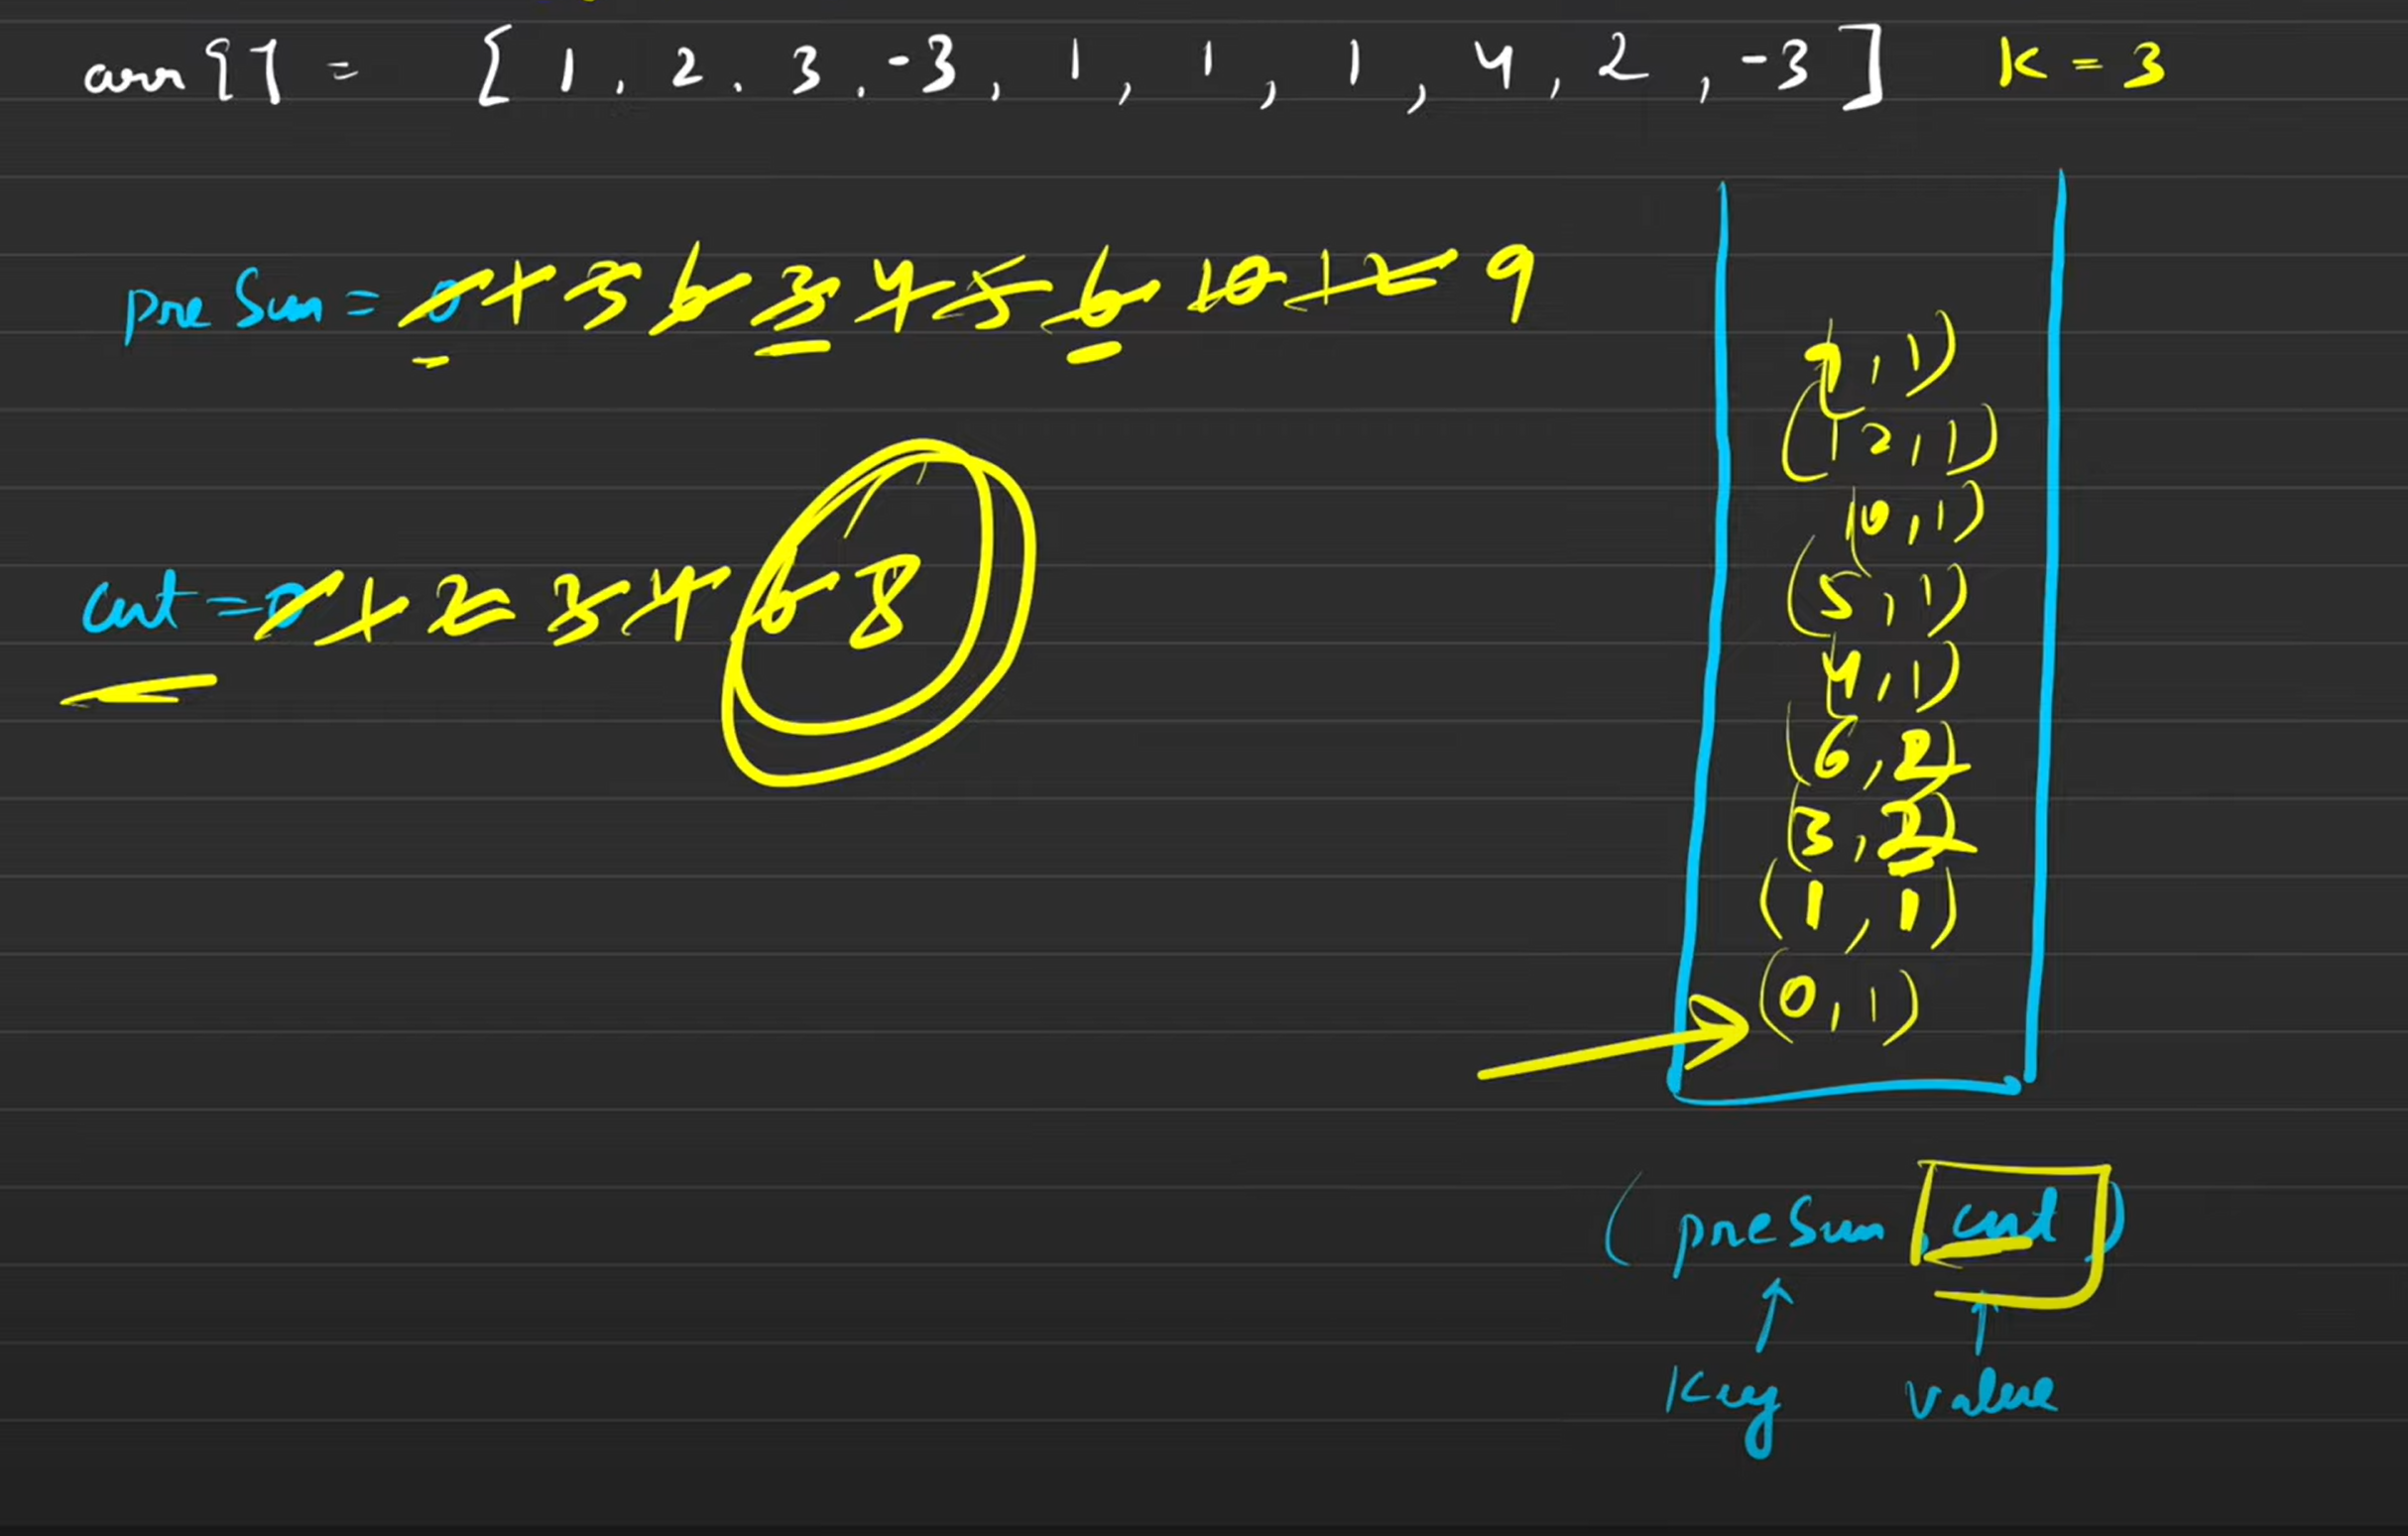 arr[] = [ 1, 2, 3, -3, 1, 1, 1, 4, 2, -3 ] K = 3
preSum = 0 1 3 6 3 4 5 6 10 12 9
cnt = 0 1 2 3 4 6 8
(9, 1)
(12, 1)
(10, 1)
(5, 1)
(4, 1)
(6, 2)
(3, 2)
(1, 1)
(0, 1)
(preSum, cnt)
Key value